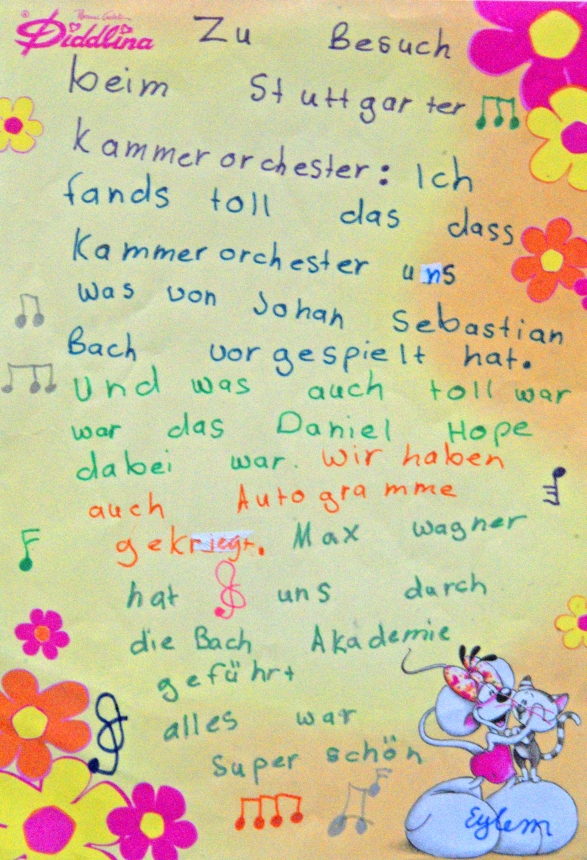 Diddlina
Zu Besuch
beim Stuttgarter
Kammerorchester: Ich
fands toll das dass
Kammerorchester uns
was von Johan Sebastian
Bach vorgespielt hat.
Und was auch toll war
war das Daniel Hope
dabei war. Wir haben
auch Autogramme
gekriegt. Max wagner
hat uns durch
die Bach Akademie
geführt
alles war
super schön
Eylem